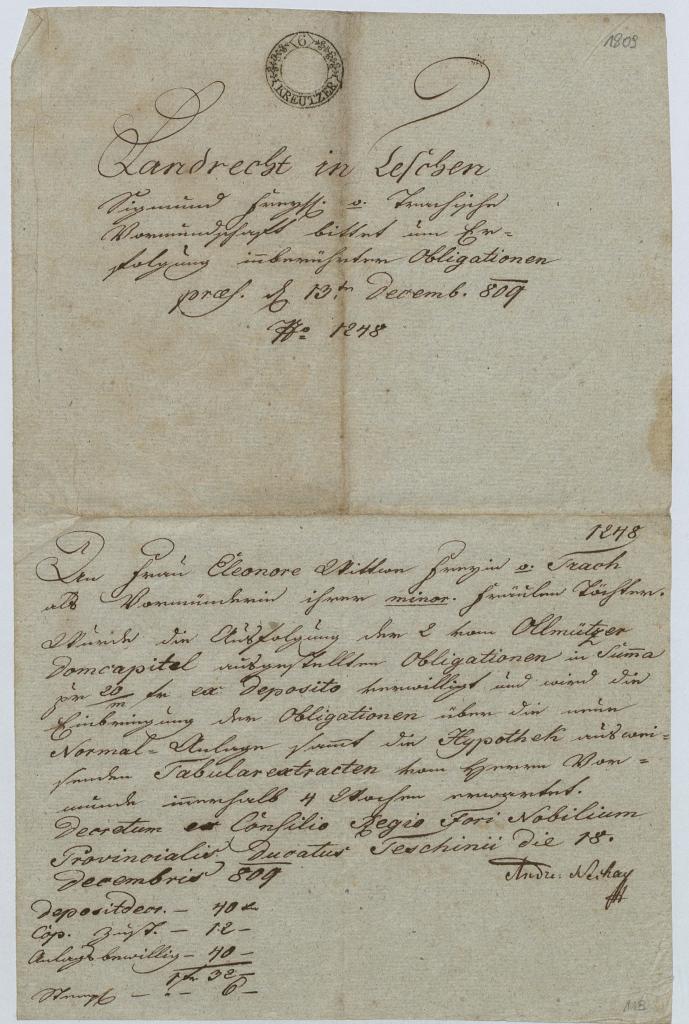 1809
6
KREUTZER
Landrecht in Teschen
Sigmund Freyh. v. Trachische
Vormundschaft bittet um Er-
folgung inberührter Obligationen
præs. d 13ten Decemb. 809
No 1248
1248
An Frau Eleonore Wittwe Freyin v. Trach
als Vormünderin ihrer minor. Fräulen Töchter.
Wurde die Ausfolgung der 2 vom Ollmützer
Domcapitel ausgestellten Obligationen in Summa
pr 20/m fr ex Deposito verwilligt und wird die
Einbringung der Obligationen über die neue
Normal-Anlage sammt die Hypothek auswei-
senden Tabularextracten vom Herrn Vor-
munde innerhalb 4 Wochen erwartet.
Decretum ex Consilio Regio Fori Nobilium
Provincialis Ducatus Teschinii die 18.
Decembris 809
Depositdecr. – 40 x
Cop. Zust. – 12 –
Anlagsbewillig – 40 –
1 fr 32 –
Stempl – . – 6 –
118